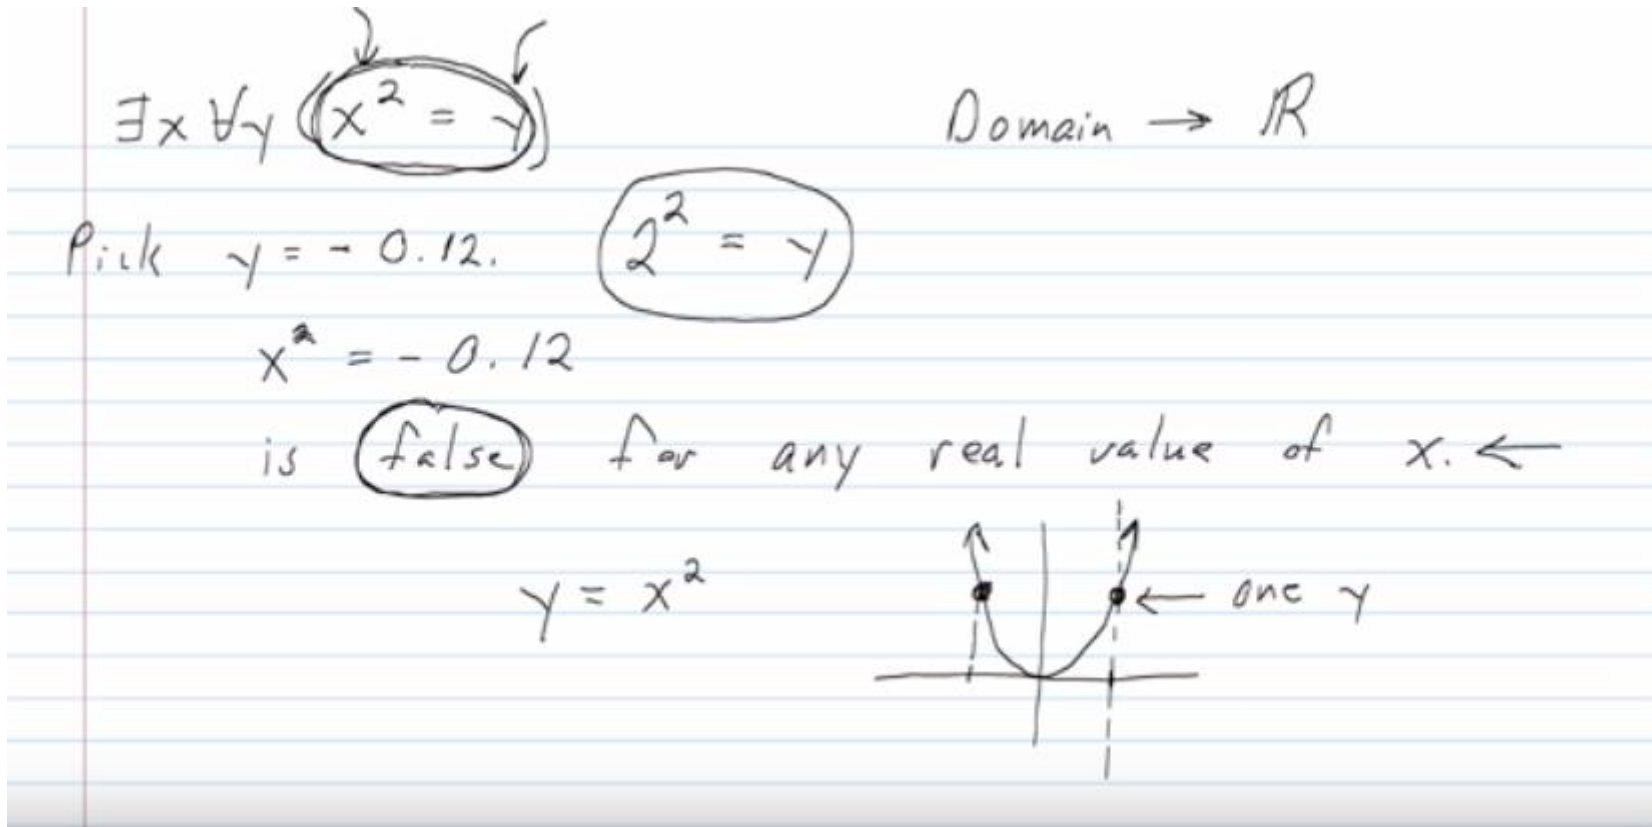 ∃x ∀y (x² = y)    Domain → ℝ
Pick y = - 0.12.    2² = y
x² = - 0.12
is false for any real value of x. ←
y = x²    ← one y